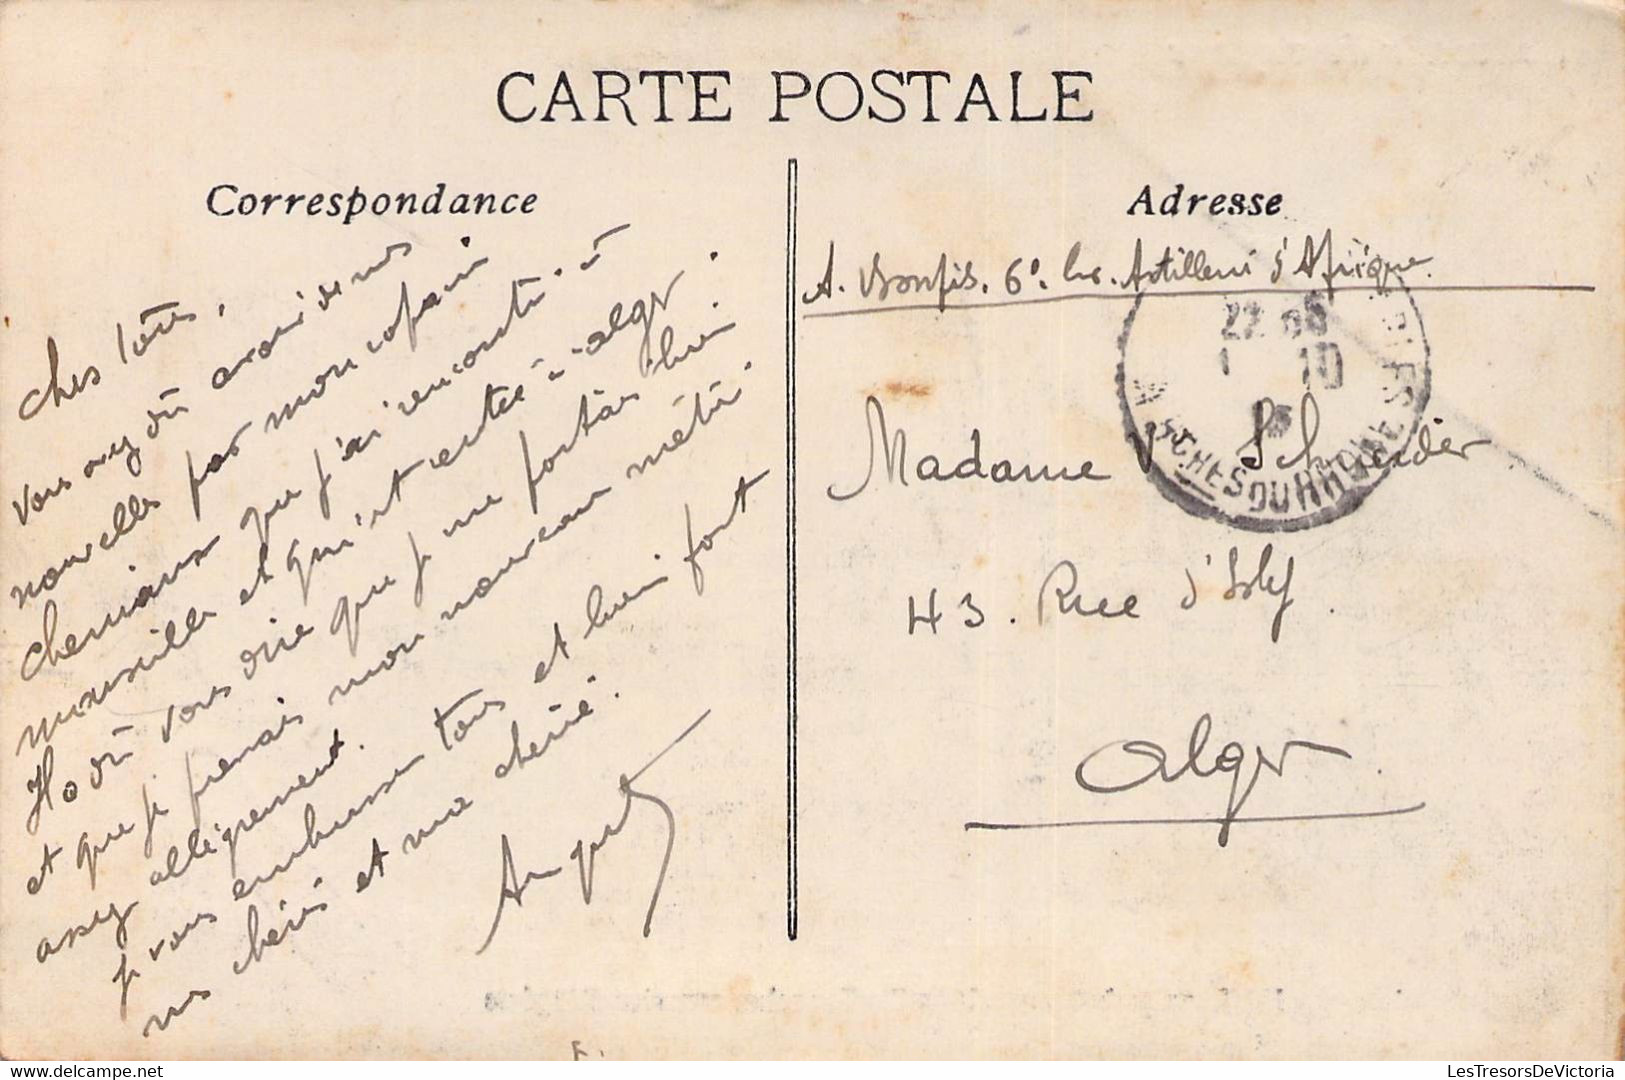 CARTE POSTALE
Correspondance
Adresse
Chers tous,
Vous avez dû avoir de mes
nouvelles par mon copain
que j'ai rencontré à
Marseille et qui est rentré à Alger.
Il a dû vous dire que je me portais bien
et que je prenais mon nouveau métier
assez allègrement.
Je vous embrasse tous et bien fort
mes chéris et ma chérie.
A. 6e. Artillerie d'Afrique
Madame V Schneider
43. Rue d'Isly
Alger
22
1 10
CHES DU RHONE
LesTresorsDeVictoria